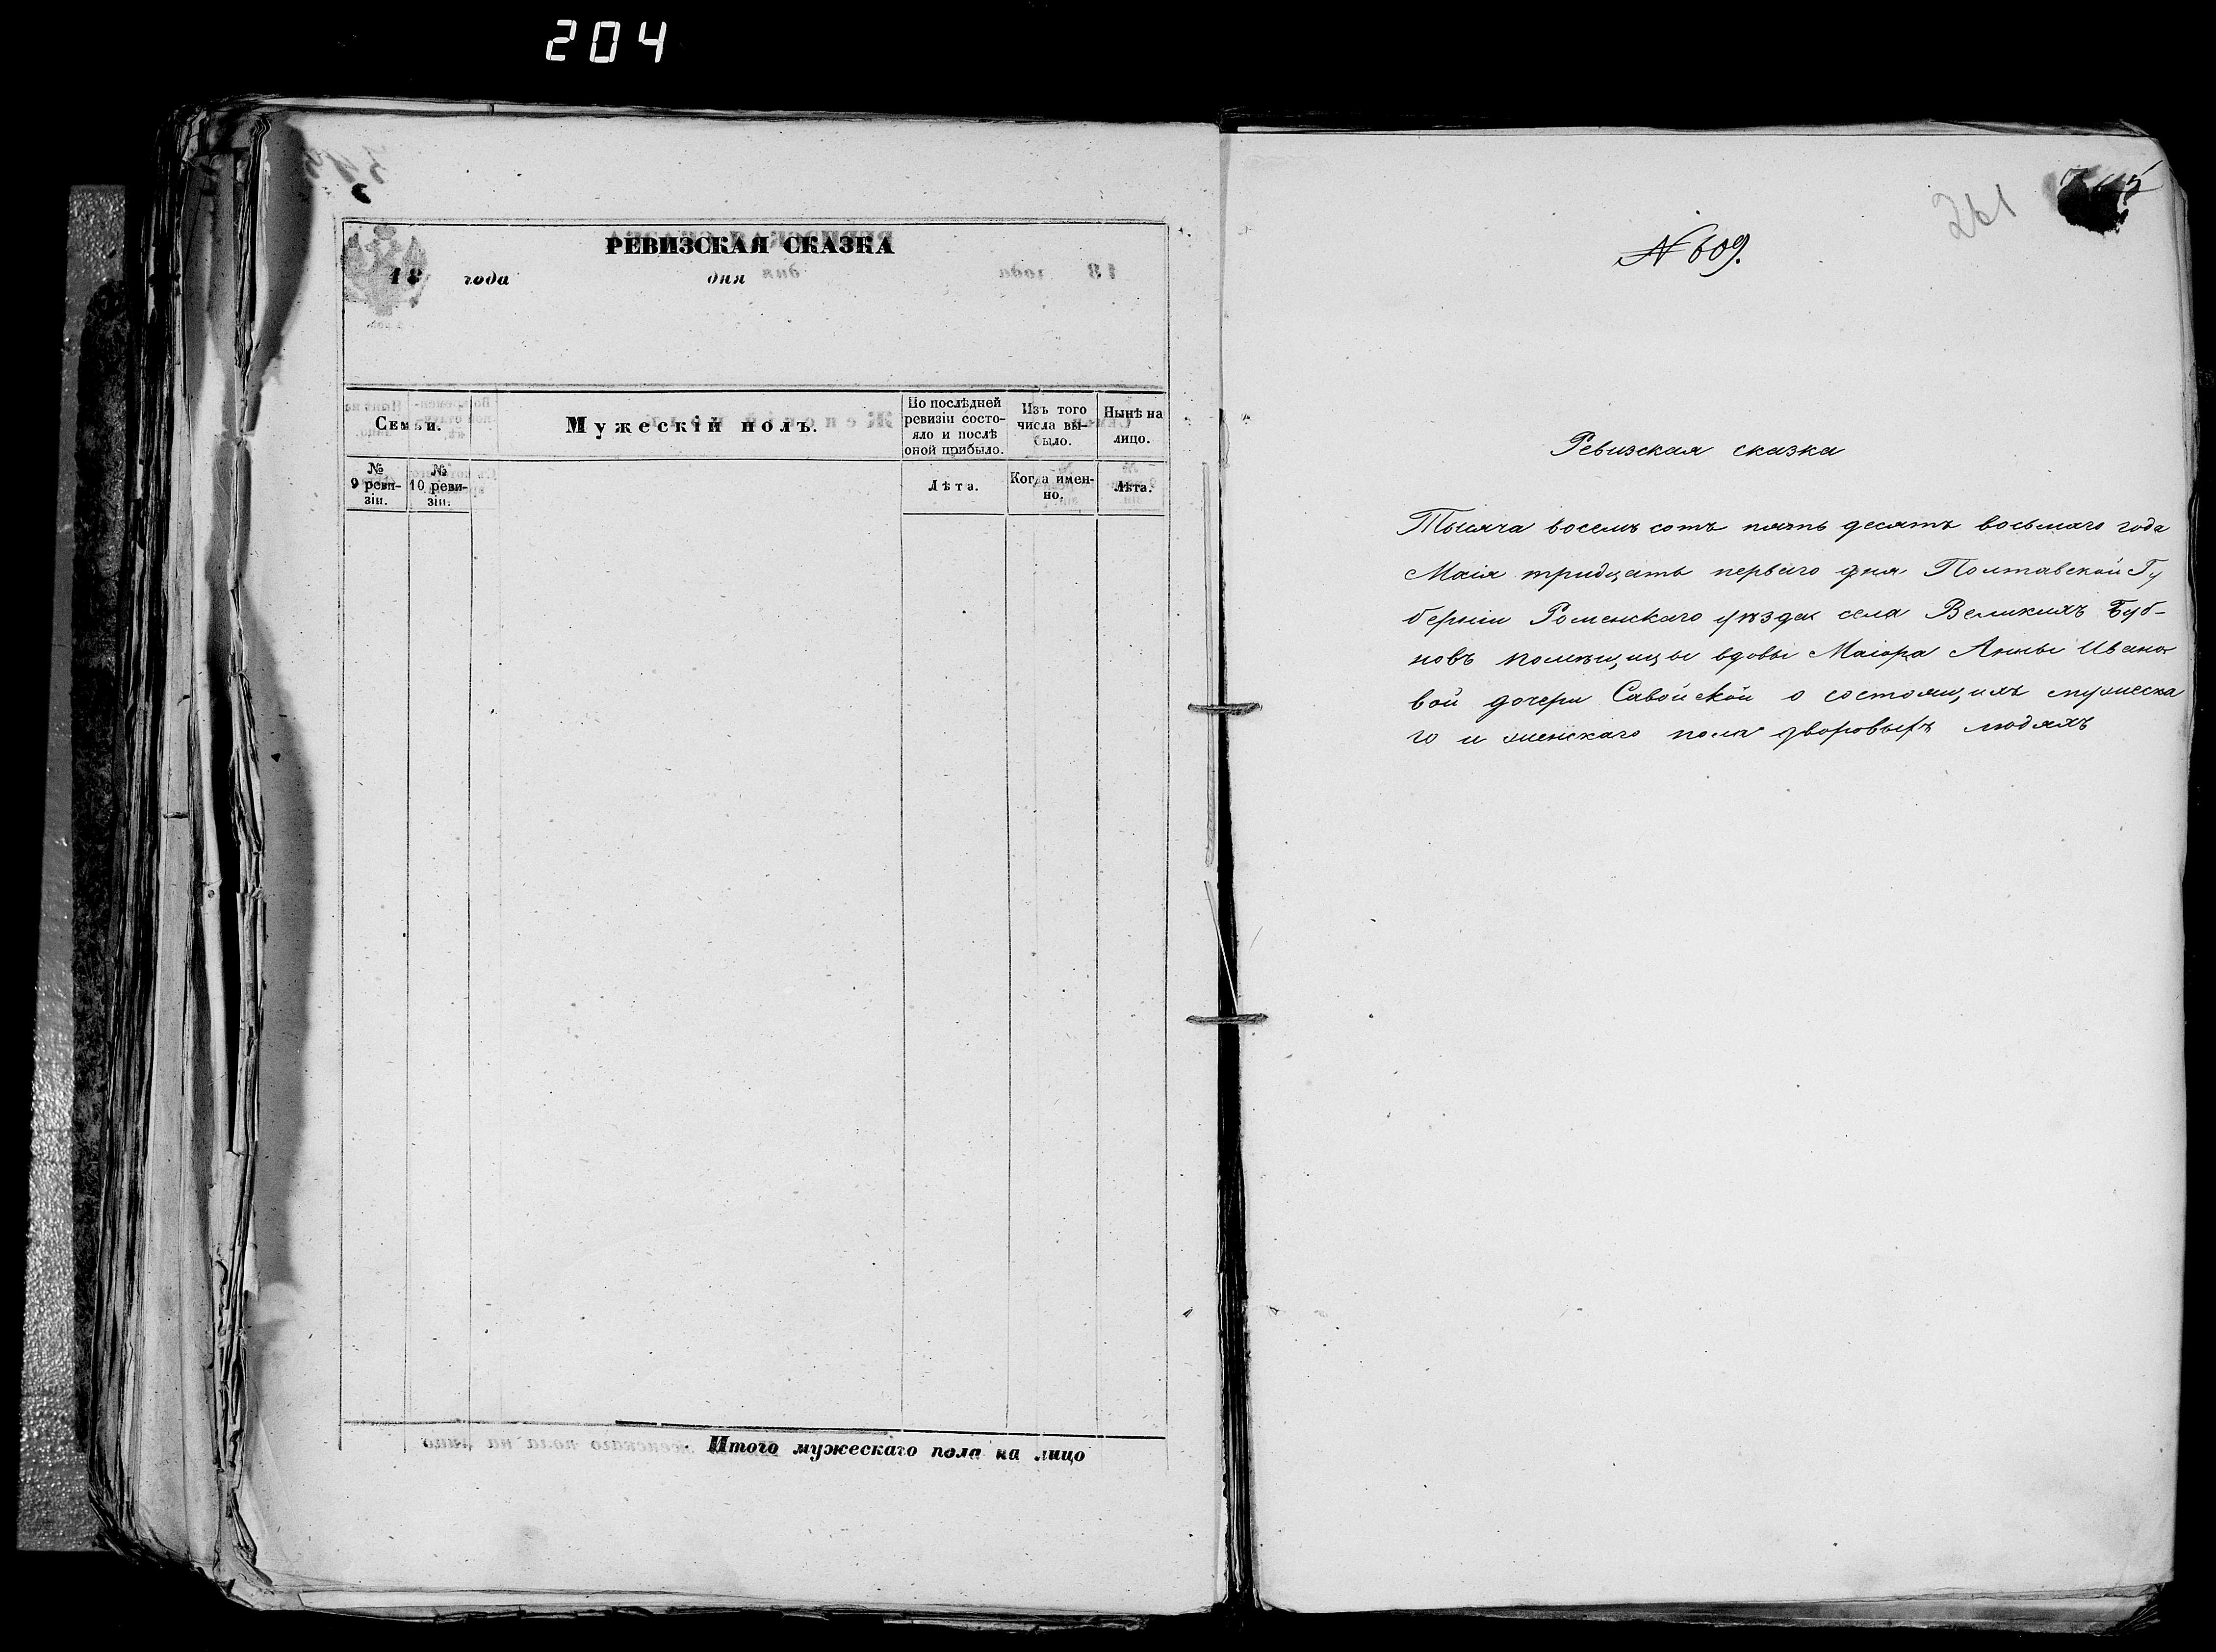 204
РЕВИЗСКАЯ СКАЗКА
18 года дня
Семьи.
Мужескій полъ.
По послѣдней
ревизіи состо-
яло и послѣ
оной прибыло.
Изъ того
числа вы-
было.
Нынѣ на
лицо.
№
9 реви-
зіи.
№
10 реви-
зіи.
Лѣта.
Когда имен-
но.
Лѣта.
Итого мужескаго пола на лицо
261
№ 609.
Ревизская сказка
Тысяча восемь сотъ пять десятъ восьмаго года
Маія тридцать перваго дня Полтавской Гу
берніи Роменскаго уѣзда села Великихъ Буб-
новъ помѣщицы вдовы Маіора Анны Ивано
вой дочери Савойской о состоящихъ мужеска
го и женскаго пола дворовыхъ людяхъ